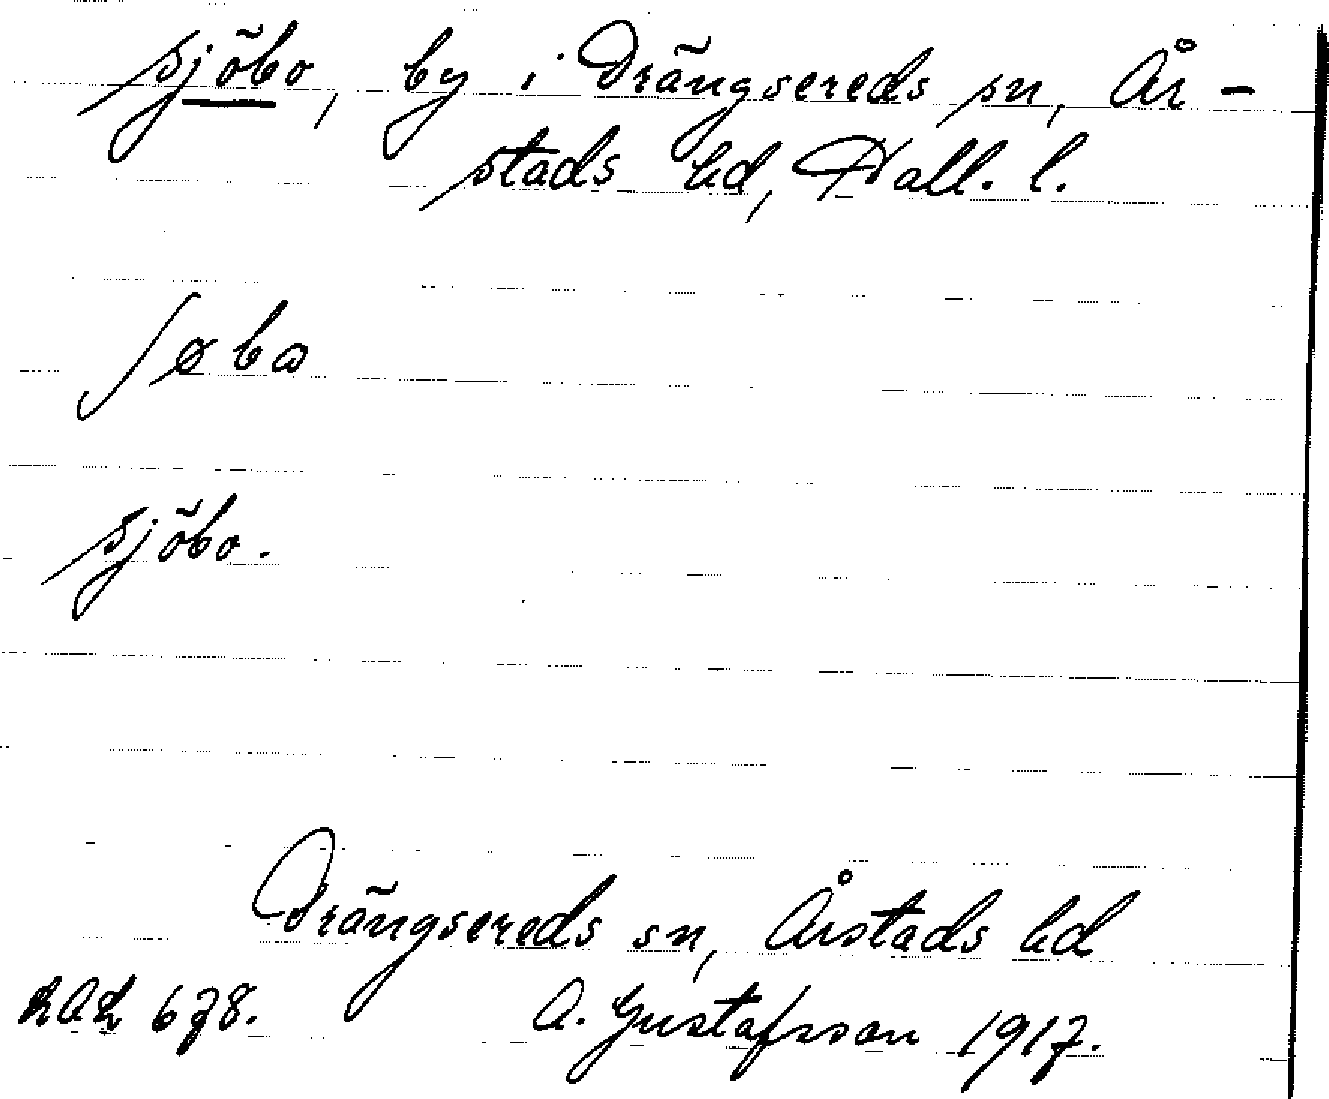 Sjöbo, by i Drängsereds sn, År-
stads hd, Hall. l.
ʃøba
Sjöbo.
Drängsereds sn, Årstads hd
678. A. Gustafsson 1917.